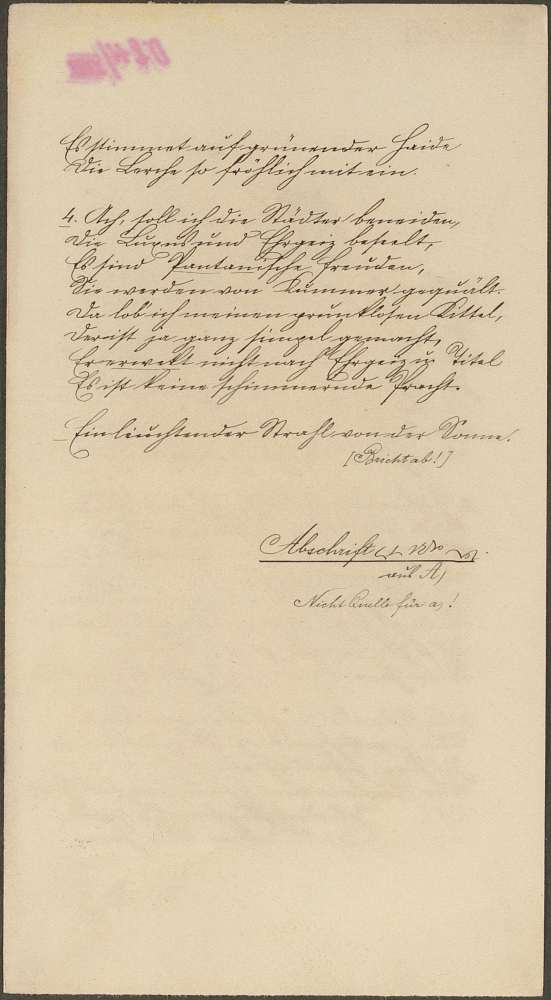 Es stimmet auf grünender Haide
Die Lerche so fröhlich mit ein.
4. Ach, soll ich die Städter beneiden,
Die Luxus und Ehrgeiz beseelt,
Es sind Pantanische Freuden,
Sie werden von Kummer gequält.
Da lob ich meinen prunklosen Kittel,
Der ist ja ganz simpel gemacht,
Er erweckt nicht nach Ehrgeiz u. Titel
Es ist keine schimmernde Pracht.
Ein leuchtender Strahl von der Sonne.
[Bricht ab!]
Abschrift
aus A)
Nicht Quelle für a)!